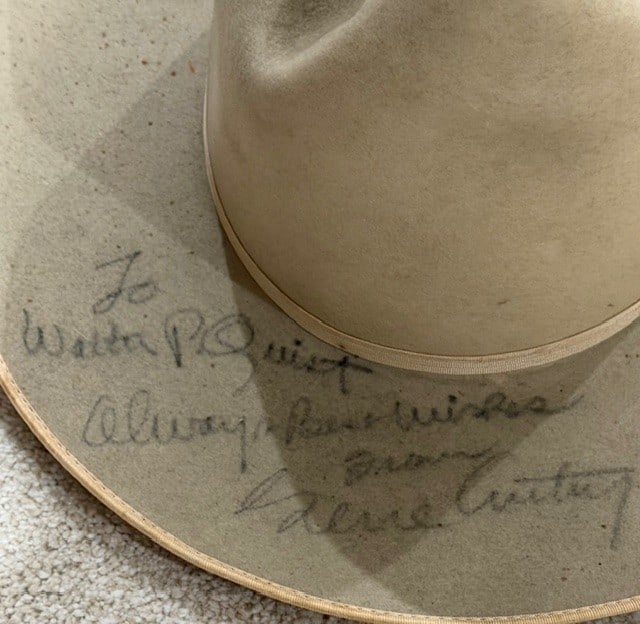 To
Walter P. Quist
Always Best Wishes
From
Gene Autry